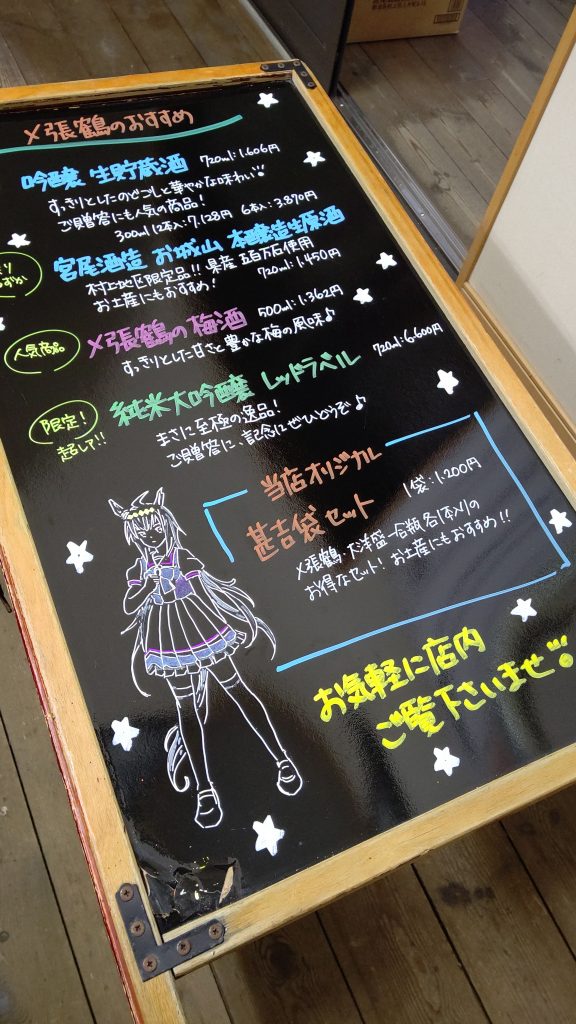 〆張鶴のおすすめ
吟醸 生貯蔵酒 720ml:1.606円
すっきりとしたのどごしと華やかな味わい
ご贈答にも人気の商品!
300ml 12本入:7.128円 6本入:3.870円
宮尾酒造 お城山 本醸造生原酒
村上地区限定品!! 県産 五百万石使用
お土産にもおすすめ! 720ml:1.450円
人気商品
〆張鶴の梅酒 500ml:1.362円
すっきりとした甘さと豊かな梅の風味♪
限定!
純米大吟醸 レッドラベル 720ml:6.600円
まさに至極の逸品!
ご贈答に、記念にぜひどうぞ♪
当店オリジナル
甚吉袋セット 1袋:1.200円
〆張鶴・大洋盛 一合瓶 各1本入りの
お得なセット! お土産にもおすすめ!!
お気軽に店内
ご覧下さいませ